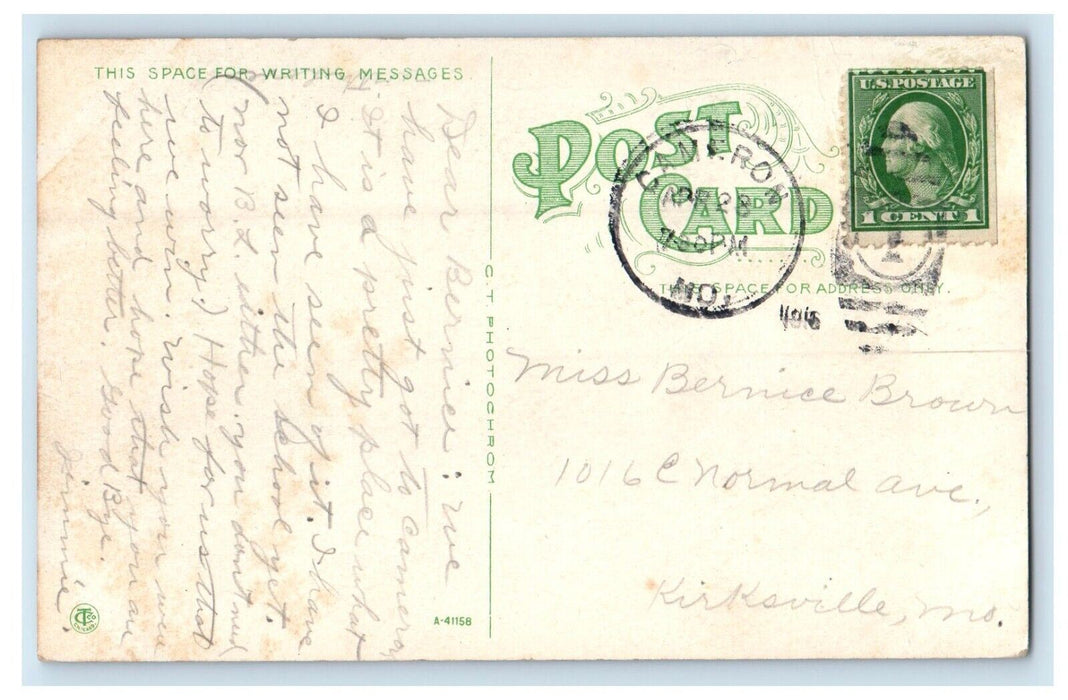 THIS SPACE FOR WRITING MESSAGES
Dear Bernice: We
have just got to Cameron
It is a pretty place what
I have seen of it. I have
not seen the school yet.
(nor B.L. either. you dont need
to worry.) Hope for us that
we win. Wish you were
here and hope that you are
feeling better. Good Bye.
Jimmie.
C.T. PHOTOCHROM
A-41158
CT Co
CHICAGO
POST CARD
THIS SPACE FOR ADDRESS ONLY.
CAMERON
APR 28
PM
MO.
U.S. POSTAGE
1 CENT 1
Miss Bernice Brown
1016 E Normal ave.,
Kirksville, Mo.